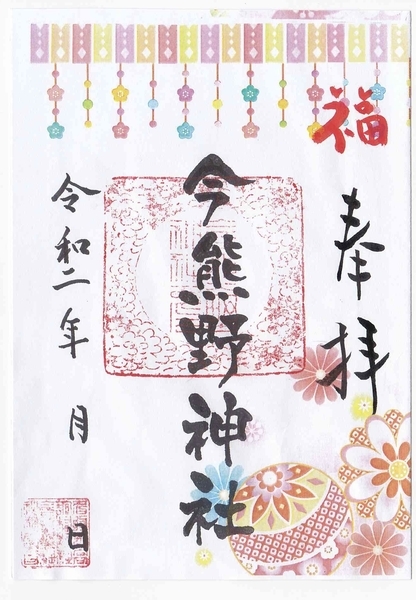 福
奉拝
今熊野神社
令和二年 月
日